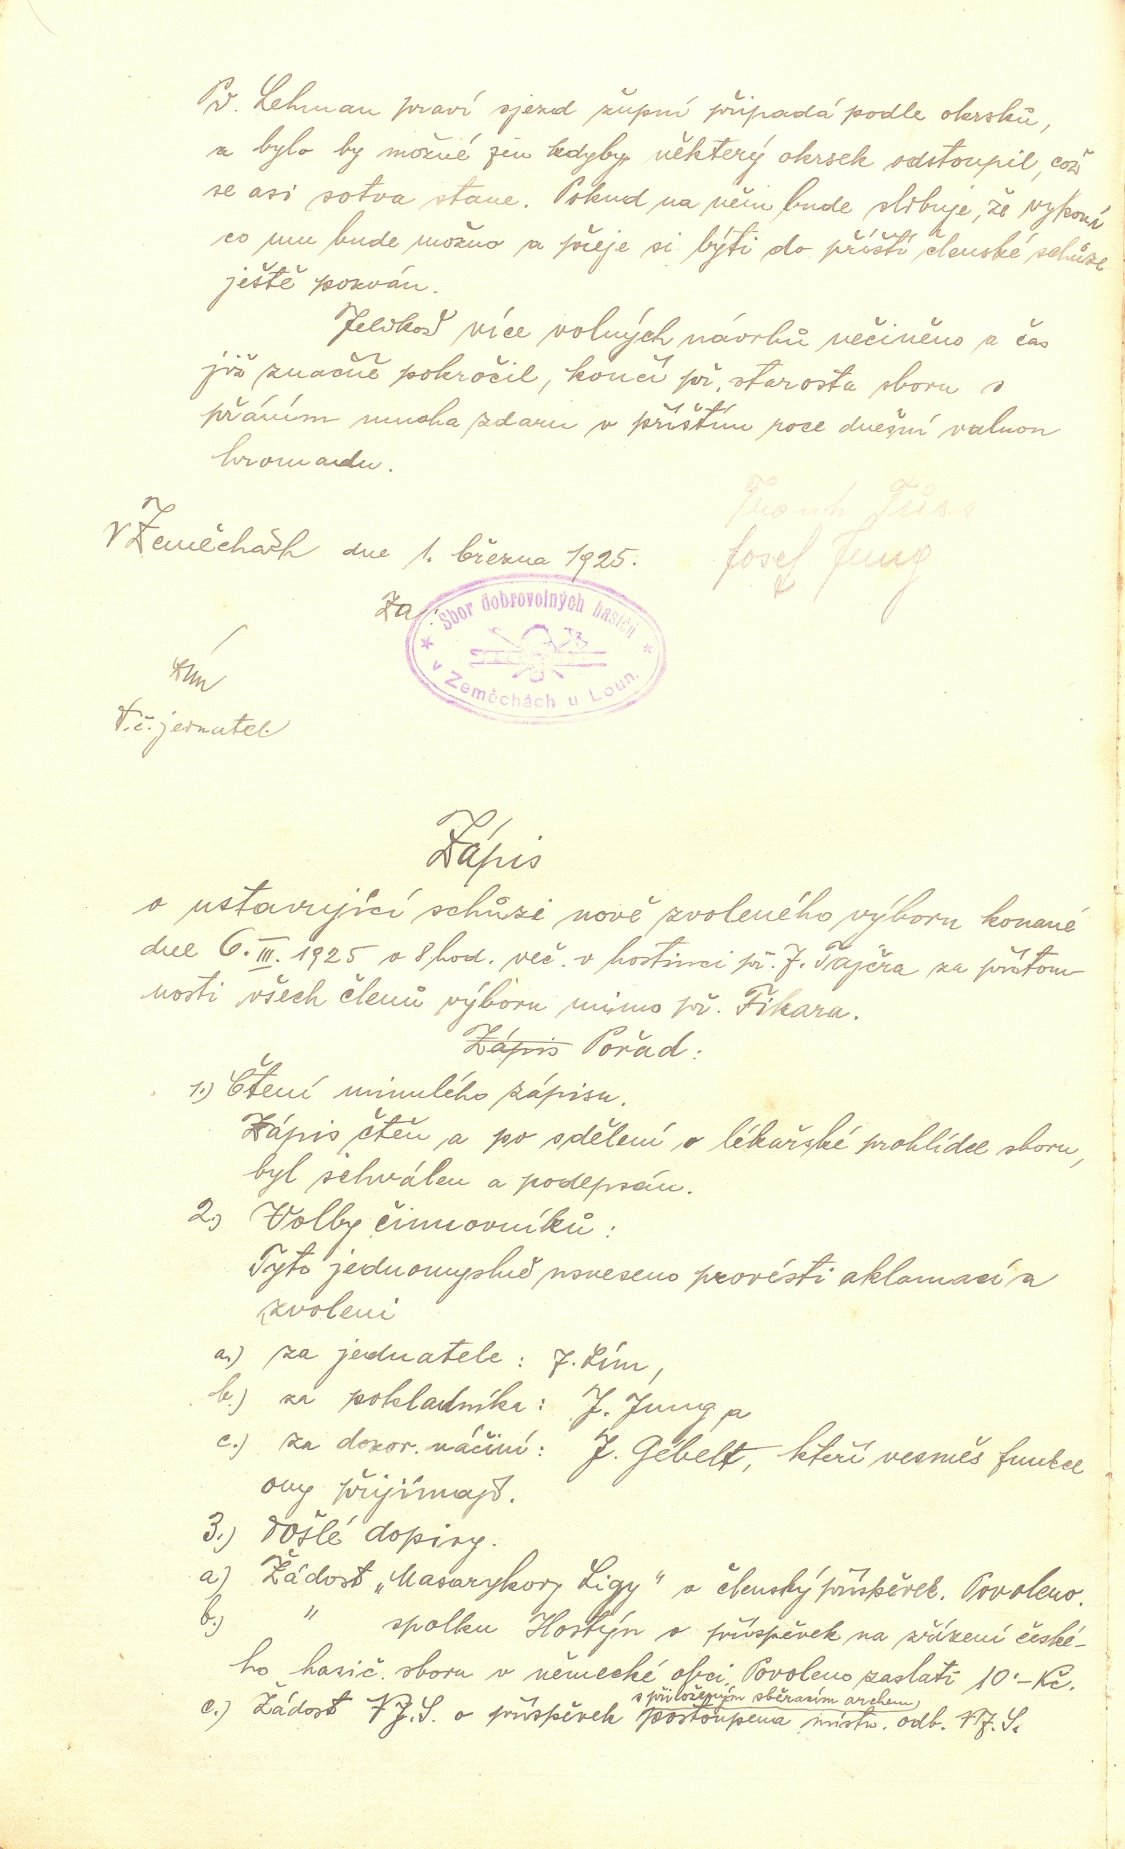 Př. Lehman praví sjezd župní připadá podle okrsků,
a bylo by možné jen kdyby některý okrsek odstoupil, což
se asi sotva stane. Pokud na něm bude slibuje, že vykoná
co mu bude možno a přeje si býti do příští členské schůze
ještě pozván.
Jelikož více volných návrhů nečiněno a čas
již značně pokročil, končí př. starosta sboru s
přáním mnoha zdaru v příštím roce dnešní valnou
hromadu.
V Zeměchách dne 1. března 1925.
Frant. Füss
Josef Jung
Za
Sbor dobrovolných hasičů
v Zeměchách u Loun.
Lím
t.č. jednatel.
Zápis
o ustavující schůzi nově zvoleného výboru konané
dne 6. III. 1925 o 8 hod. več. v hostinci př. J. Tajčra za přítom-
nosti všech členů výboru mimo př. Fikara.
Zápis Pořad:
1.) Čtení minulého zápisu.
Zápis čtěn a po sdělení o lékařské prohlídce sboru,
byl schválen a podepsán.
2.) Volby činovníků:
Tyto jednomyslně usneseno provésti aklamací a
zvoleni
a.) za jednatele: J. Lím,
b.) za pokladníka: J. Jung a
c.) za dozor. náčiní: J. Gébelt, kteří vesměs funkce
ony přijímají.
3.) Došlé dopisy.
a) Žádost „Masarykovy Ligy" o členský příspěvek. Povoleno.
b.) " spolku Hostýn o příspěvek na zřízení české-
ho hasič. sboru v německé obci. Povoleno zaslati 10·- Kč.
s přiloženým sběracím archem
c.) Žádost NJ.S. o příspěvek postoupena místn. odb. NJ.S.